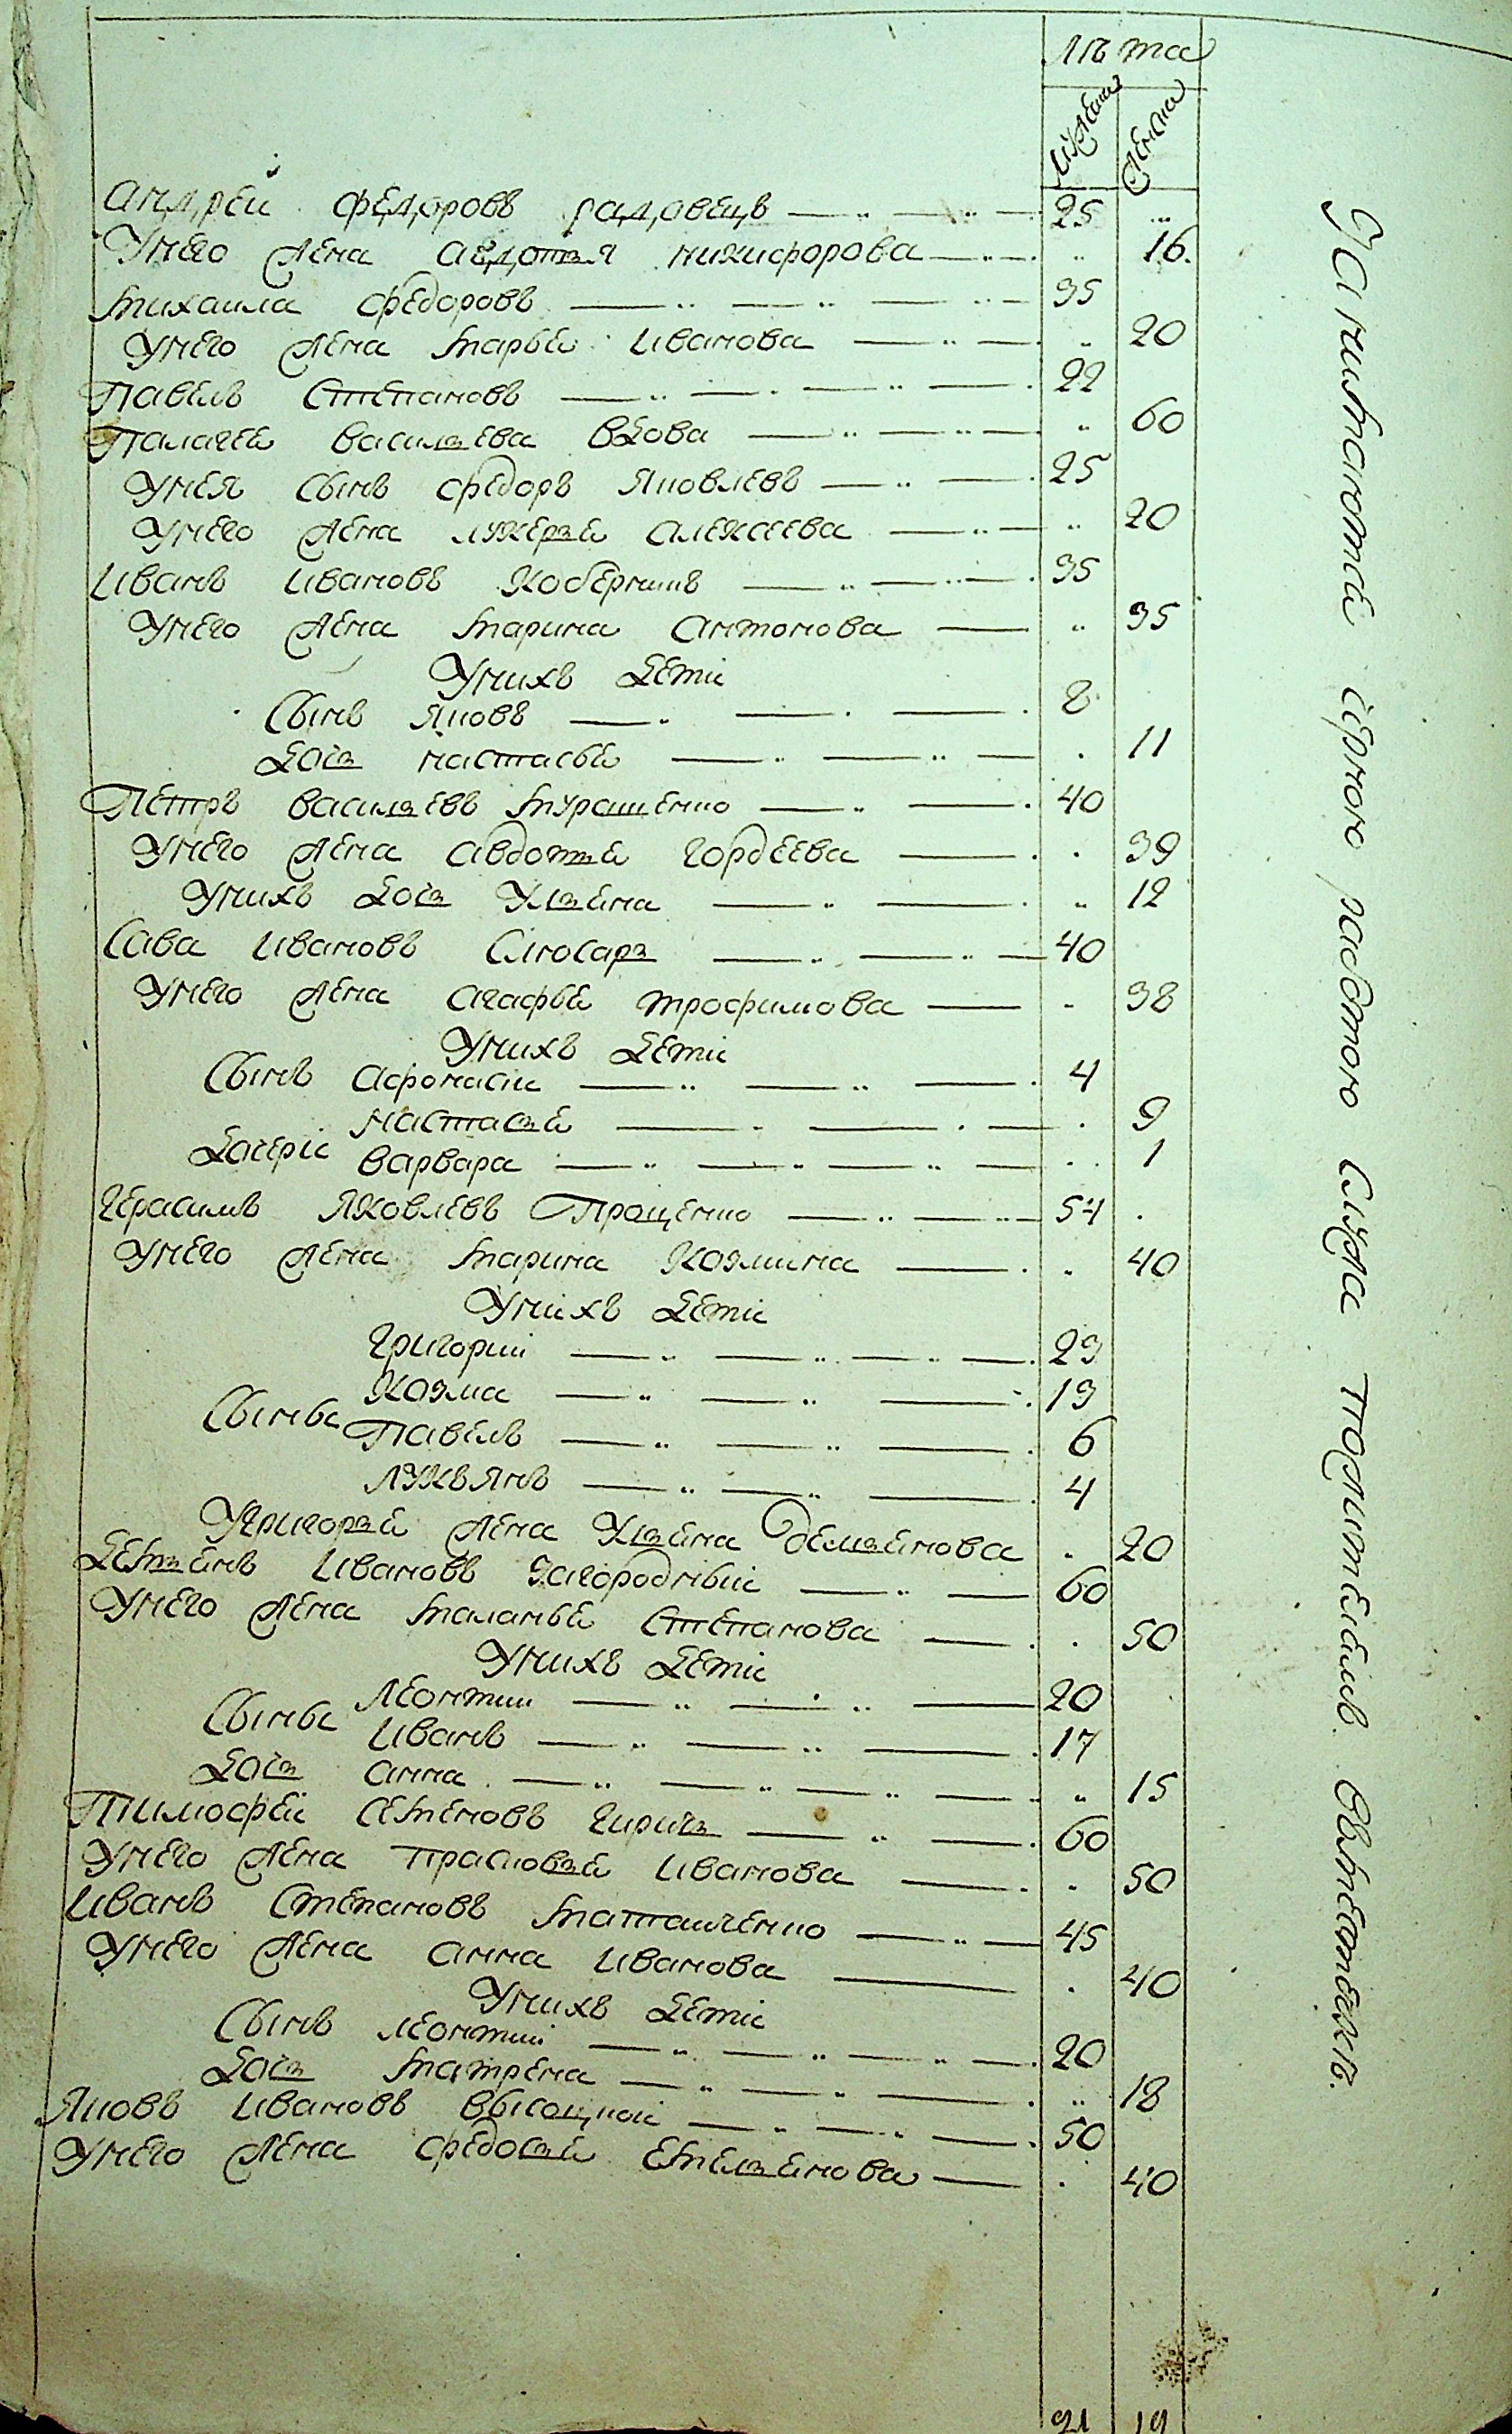 Лѣта
Мужеска
Женска
Андрей Федоровъ радовецъ 25
Унего Жена Авдотья никифорова 16.
Михаила Федоровъ 35
Унего Жена Марьѣ Иванова 20
Павелъ Степановъ 22
Палагеѣ васильева вдова 60
Унея Сынъ Федоръ Яковлевъ 25
Унего Жена лукерьѣ алексеева 20
Иванъ Ивановъ Коберникъ 35
Унего Жена Марина Антонова 35
Унихъ дети
Сынъ Яковъ 8
дочь настасьѣ 11
Петръ васильевъ Мурашенко 40
Унего Жена Авдотьѣ Гордеева 39
Унихъ дочь Ульѣна 12
Сава Ивановъ Слюсарь 40
Унего Жена агафьѣ трофимова 38
Унихъ дети
Сынъ Афонасiи 4
дочери настасьѣ 9
варвара 1
Герасимъ Яковлевъ Прощенко 54
Унего Жена Марина Козмина 40
Унихъ дети
Григории 23
Козма 13
Сынъи Павелъ 6
лукъянъ 4
Угригорьѣ Жена Ульѣна демьѣнова 20
демьѣнъ Ивановъ Загороднъи 60
Унего Жена Маланьѣ Степанова 50
Унихъ дети
Сынъи леонтии 20
Иванъ 17
дочь анна 15
Тимофеи Семеновъ Гиричь 60
Унего Жена прасковьѣ Иванова 50
Иванъ Степановъ Маташенко 45
Унего Жена анна Иванова 40
Унихъ дети
Сынъ леонтии 20
дочь Матрена 18
Яковъ Ивановъ высоцкои 50
Унего Жена федосьѣ Емельѣнова 40
21 19
работою Слуга